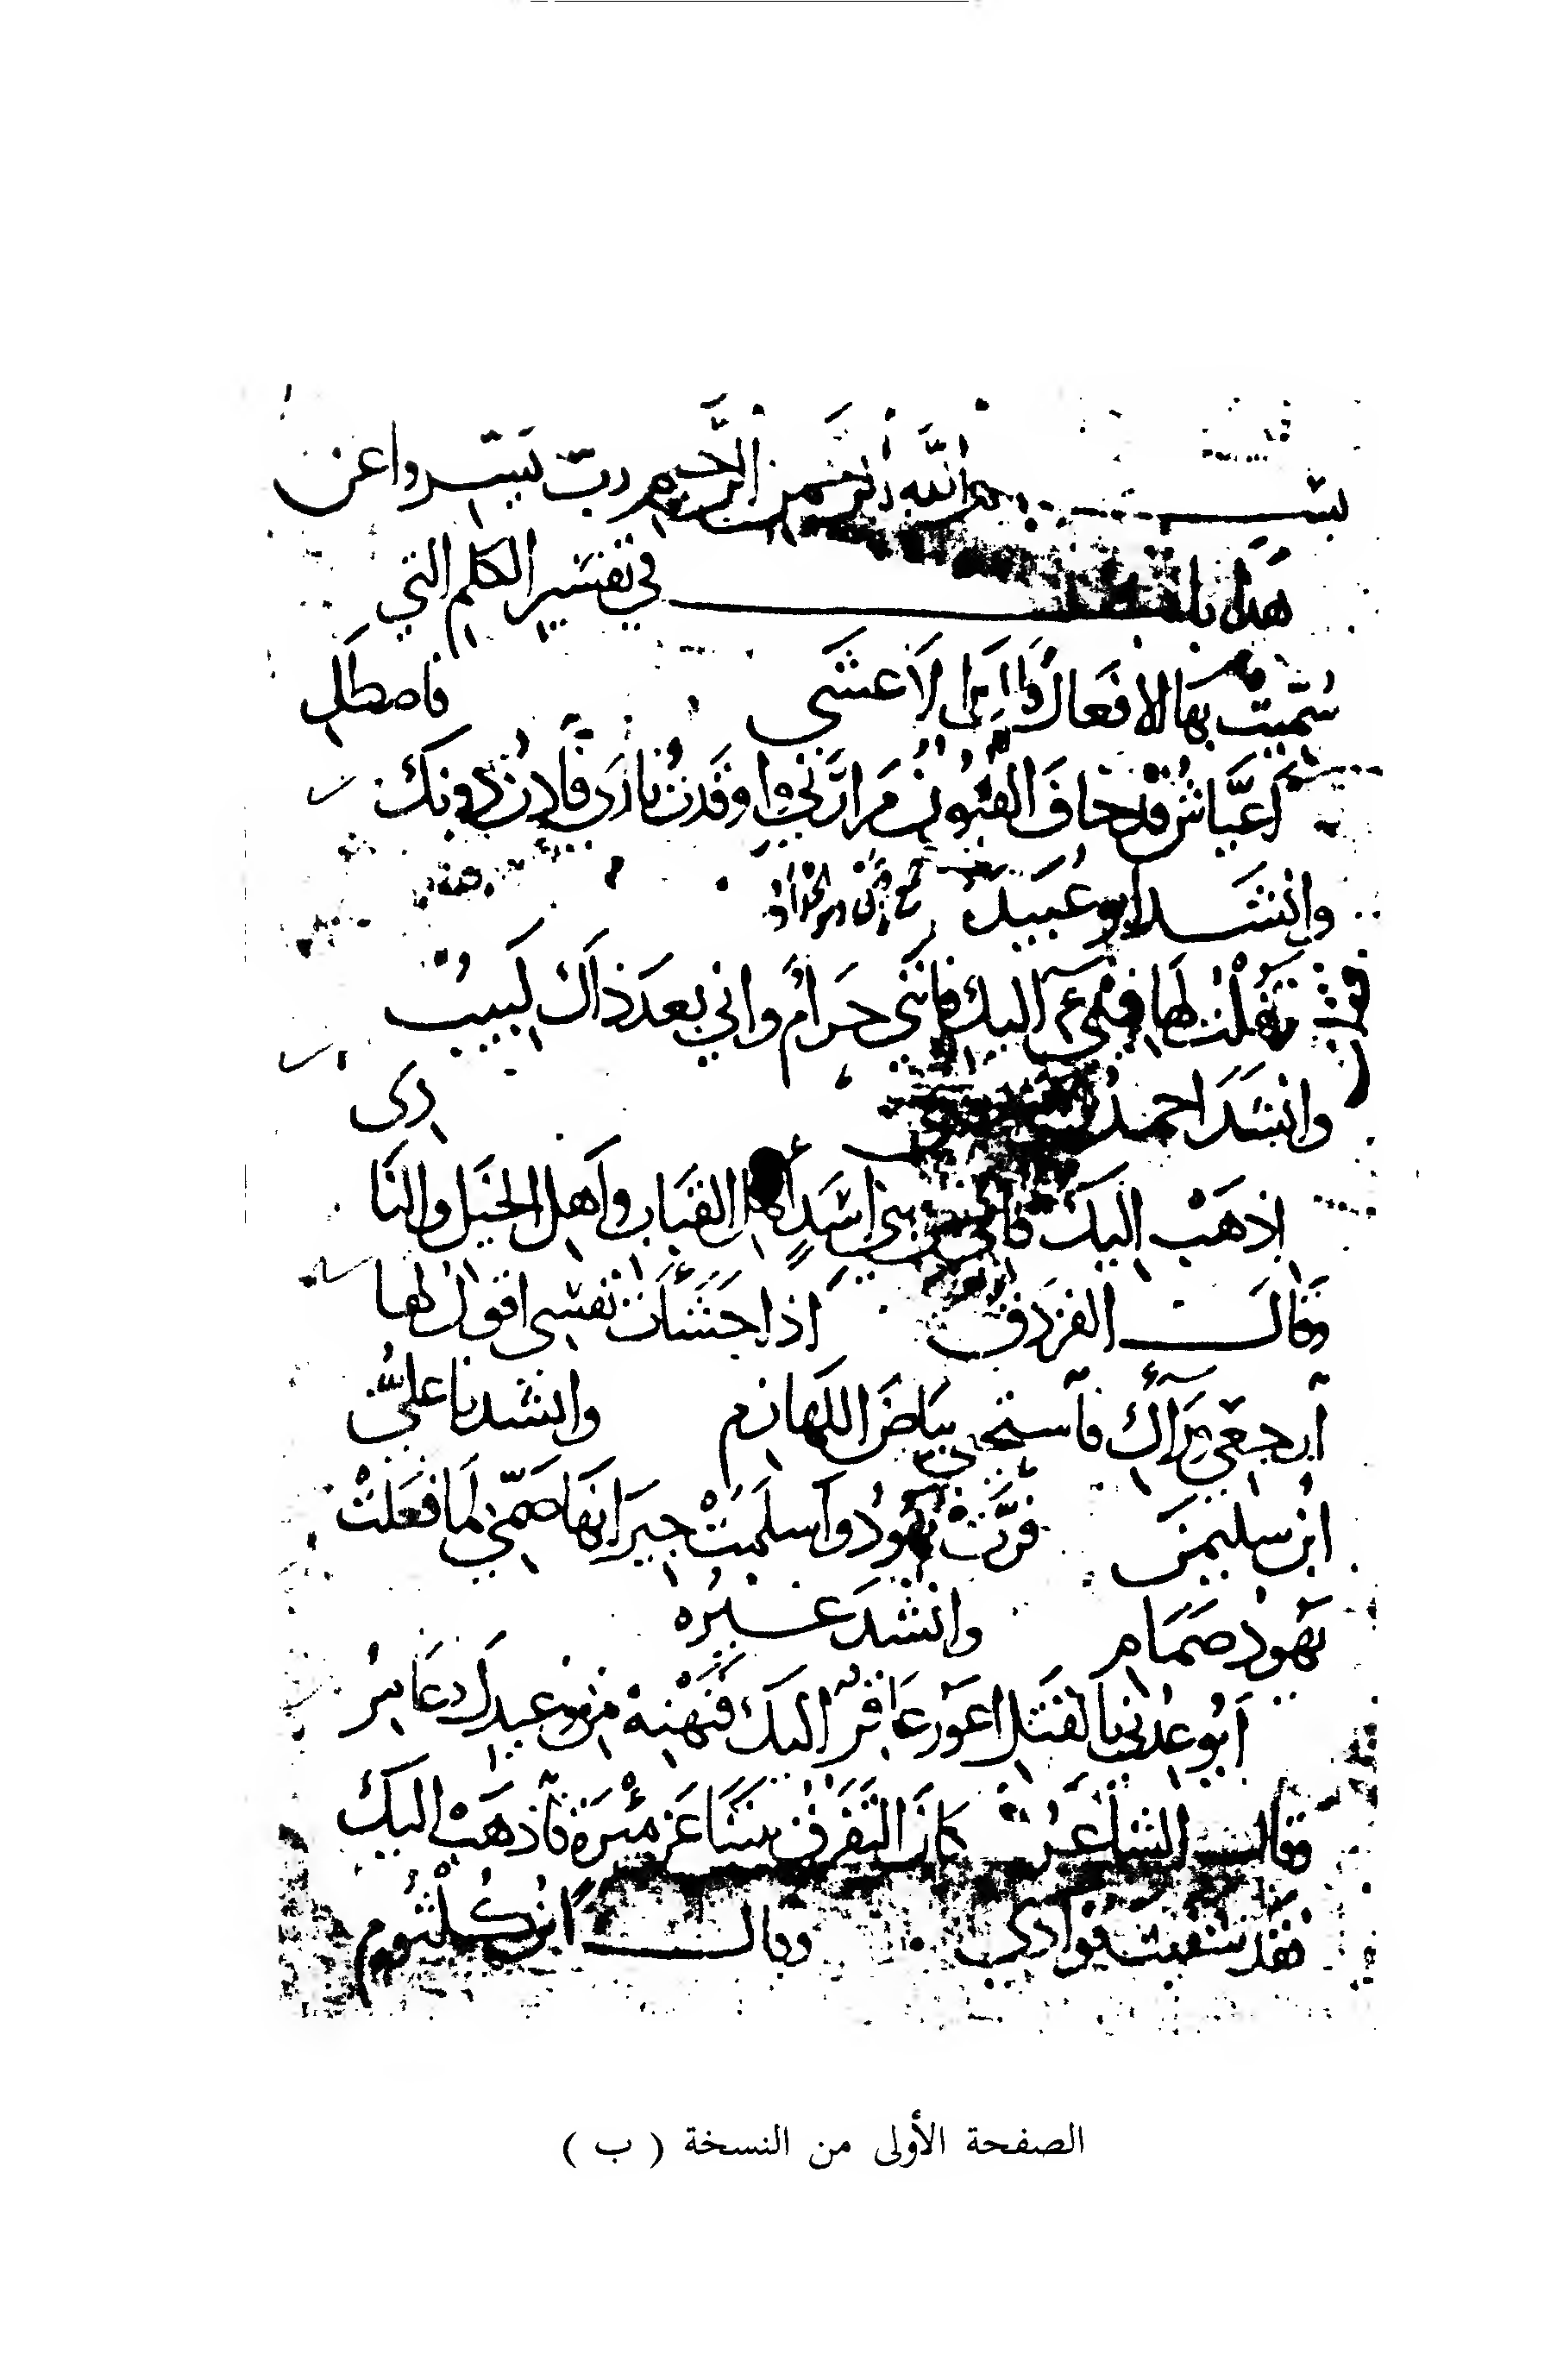 بسم الله الرحمن الرحيم رب يسر واعن
هذا باب في تفسير الكلم التي
سُمّيت بها الافعال قال الاعشى فاصطل
أعيّاش قد خاف القُيُون مرارتي واوقدتُ ناري فادن دونك
وانشد ابو عبيد
فقلت لها فيئي اليك فانني حَرام واني بعد ذاك لبيب
وانشد احمد دى
اذهب اليك فاني من بني اسد اهل القباب واهل الخيل والنا
وقال الفرزدق اذا جشأت نفسي اقول لها
آرجعي وراآك فآستحي بياض اللهازم وانشدنا علي
ابن سليمن فرّت يهود واسلمت جيرانها صمّي لما فعلت
يهود صمام وانشد غيره
أبو عدني بالقتل اعور عاقر اليك فنهنه من وعيدك عامر
وقال الشاعر كان التفرق بيننا عن مئرة فآذهب اليك
فقد شفيت فؤادي وقال ابن كلثوم
الصفحة الأولى من النسخة ( ب )